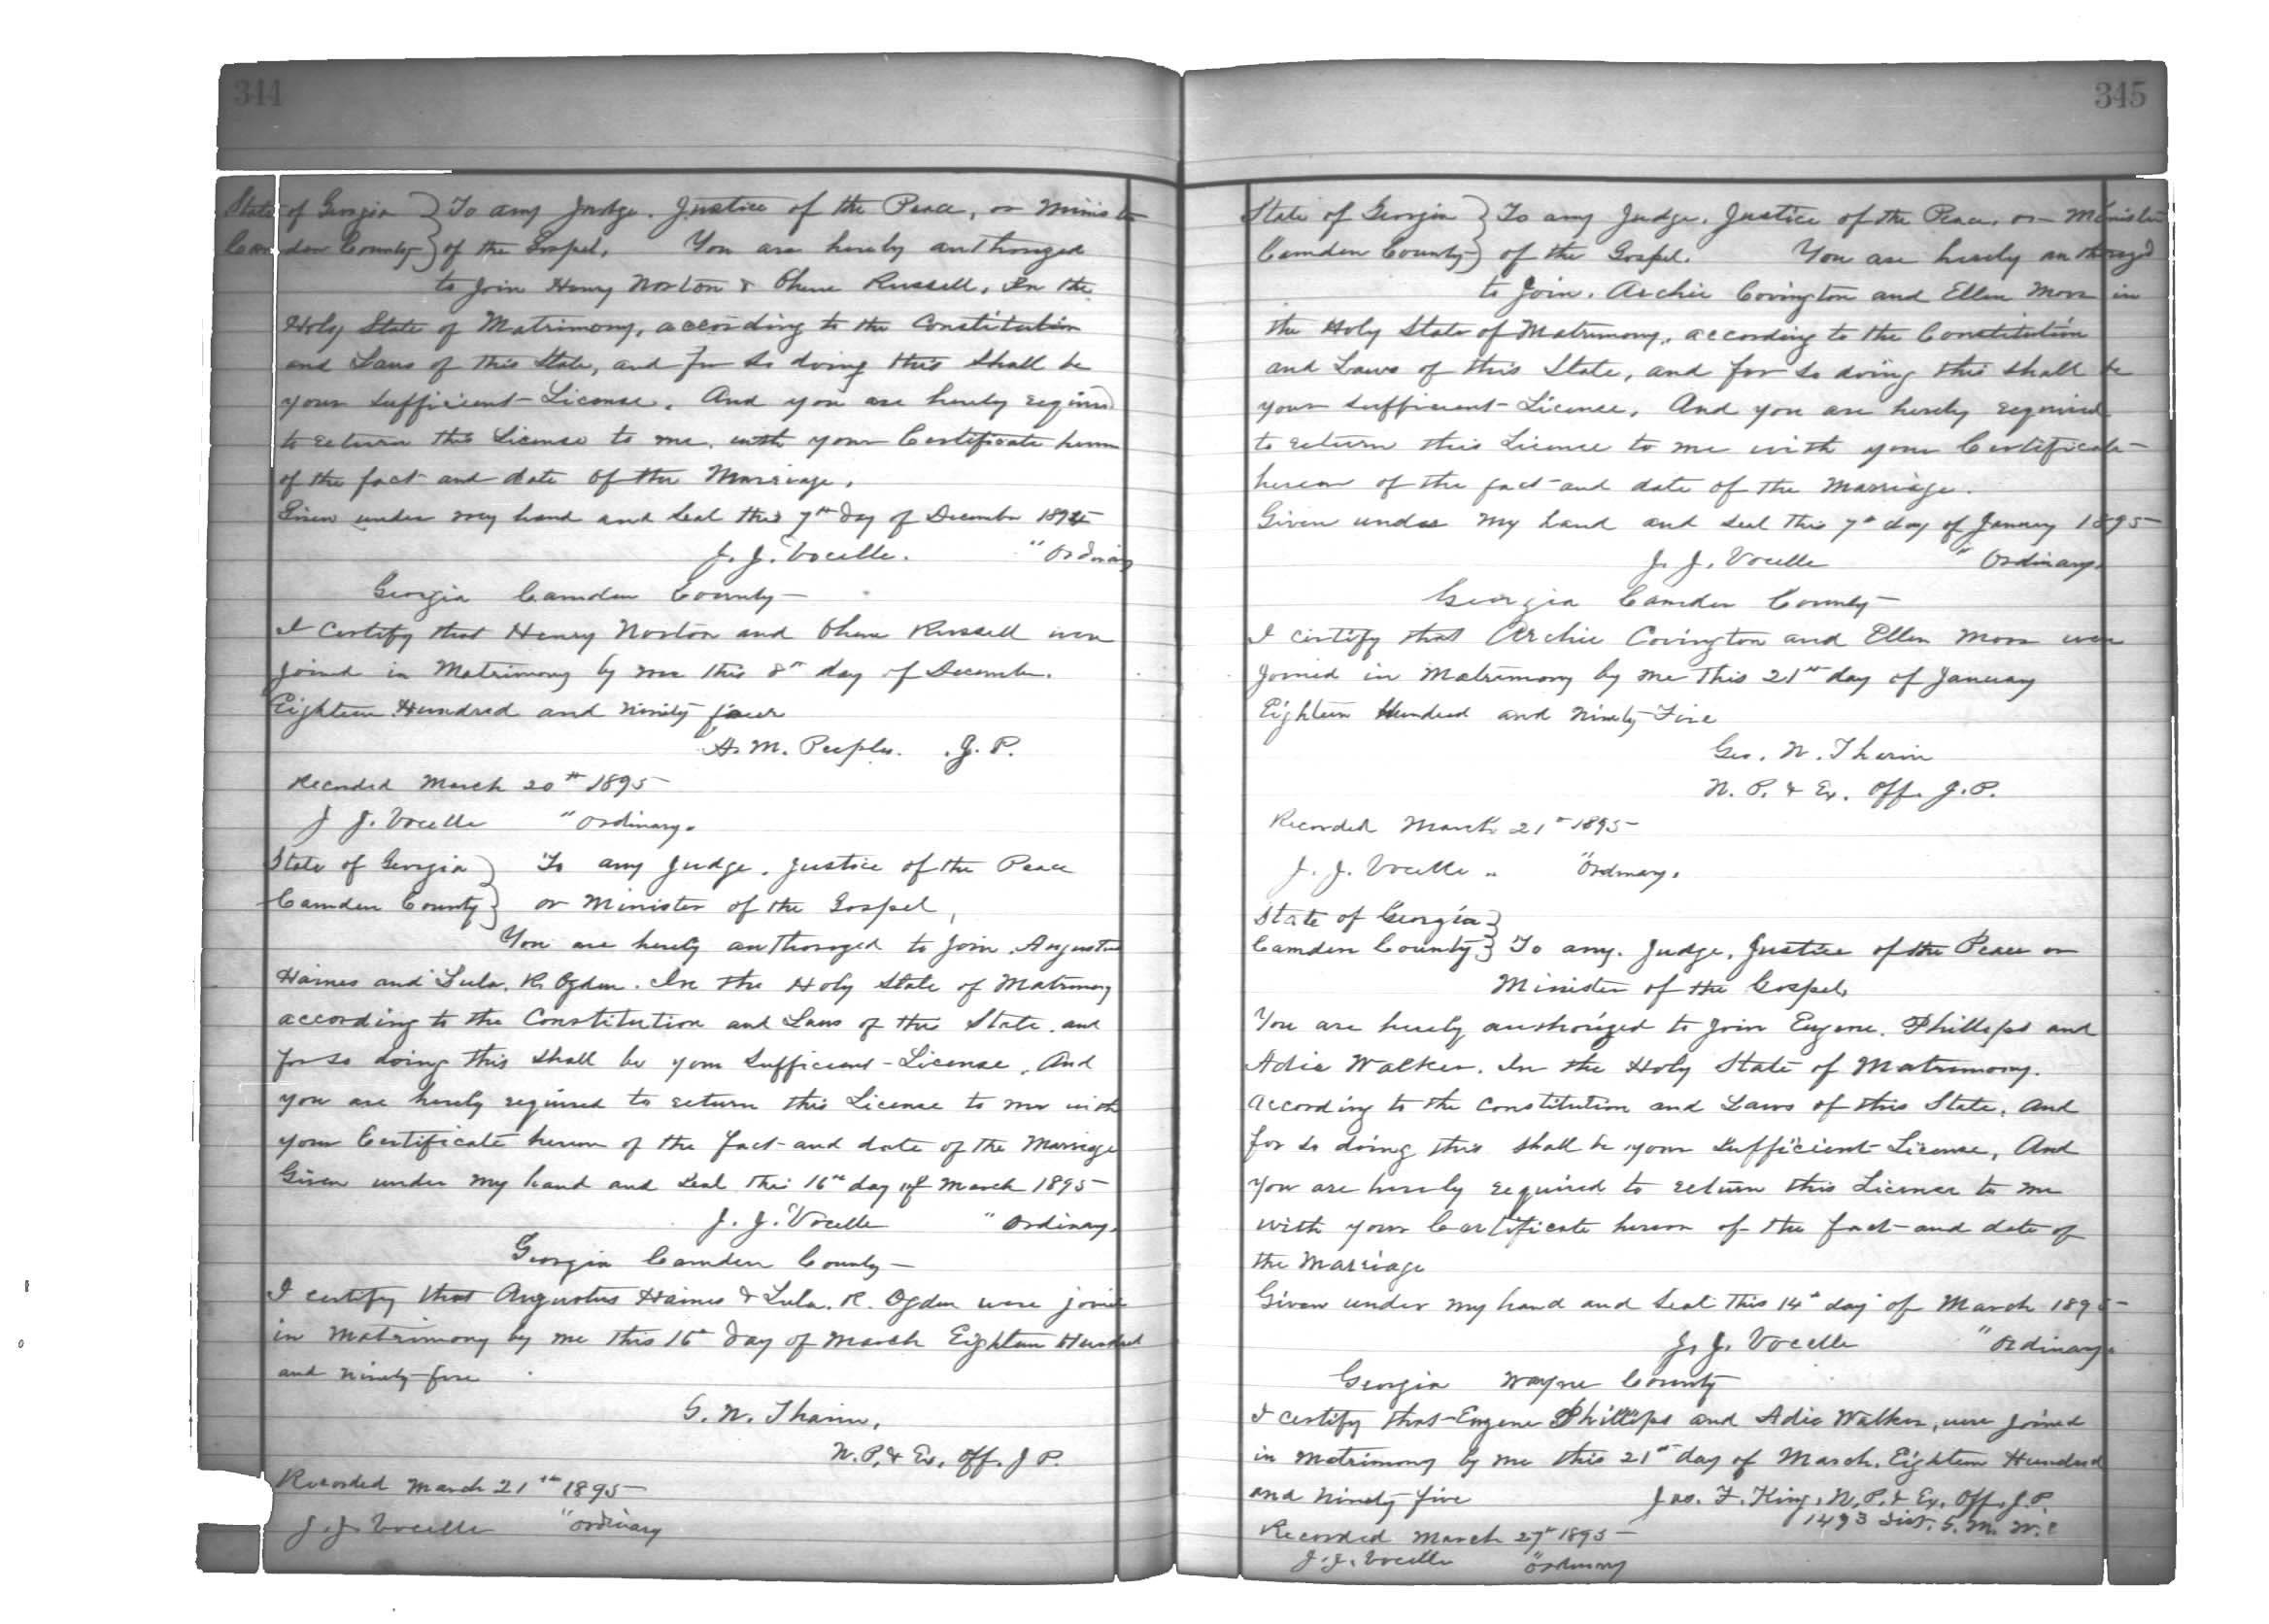 344
State of Georgia } To any Judge. Justice of the Peace, or Minister
Camden County } of the Gospel. You are hereby authorized
to Join Henry Norton & Russell, In the
Holy State of Matrimony, according to the Constitution
and Laws of this State, and for So doing this Shall be
your Sufficient License. And you are hereby required
to return this License to me. with your Certificate hereon
of the fact and date of the Marriage.
Given under my hand and Seal this 7th Day of December 1894
J. J. Vocelle. " Ordinary
Georgia Camden County
I Certify that Henry Norton and Russell were
Joined in Matrimony by me this 8th day of December.
Eighteen Hundred and Ninety four
A. M. Peeples. J. P.
Recorded March 20th 1895
J J. Vocelle " Ordinary.
State of Georgia } To any Judge. Justice of the Peace
Camden County } or Minister of the Gospel,
You are hereby authorized to Join. Augustus
Haines and Lula. R. Ogden. In the Holy State of Matrimony
according to the Constitution and Laws of this State. and
for So doing this Shall be your Sufficient License. And
you are hereby required to return this License to me with
your Certificate hereon of the fact and date of the Marriage
Given under my hand and Seal this 16th day of March 1895
J. J. Vocelle " Ordinary.
Georgia Camden County
I certify that Augustus Haines & Lula. R. Ogden were joined
in Matrimony by me this 16th Day of March Eighteen Hundred
and Ninety five
G. W. Tharin,
N. P. & Ex. Off. J P.
Recorded March 21st 1895
J. J. Vocelle " Ordinary
345
State of Georgia } To any Judge. Justice of the Peace. or Minister
Camden County } of the Gospel. You are hereby authorized
to Join. Archie Covington and Ellen Moss in
the Holy State of Matrimony, according to the Constitution
and Laws of this State, and for So doing this Shall be
your Sufficient License. And you are hereby required
to return this License to me with your Certificate
hereon of the fact and date of the Marriage.
Given under my hand and Seal this 7th day of January 1895
J. J. Vocelle " Ordinary.
Georgia Camden County
I certify that Archie Covington and Ellen Moss were
Joined in Matrimony by me this 21st day of January
Eighteen Hundred and Ninety Five
Geo. W. Tharin
N. P. & Ex. Off. J. P.
Recorded March 21st 1895
J. J. Vocelle " Ordinary.
State of Georgia }
Camden County } To any. Judge, Justice of the Peace or
Minister of the Gospel,
You are hereby authorized to Join Eugene. Phillips and
Adie Walker. In the Holy State of Matrimony.
according to the Constitution and Laws of this State. And
for So doing this Shall be your Sufficient License, And
You are hereby required to return this License to me
with your Certificate hereon of the fact and date of
the Marriage
Given under my hand and Seal this 14th day of March 1895
J. J. Vocelle " Ordinary.
Georgia Wayne County
I certify that Eugene Phillips and Adie Walker, were Joined
in Matrimony by me this 21st day of March. Eighteen Hundred
and Ninety five Jas. F. King. N. P. & Ex. Off. J. P.
1493 Dist. G. M. W. C
Recorded March 27th 1895
J. J. Vocelle " Ordinary